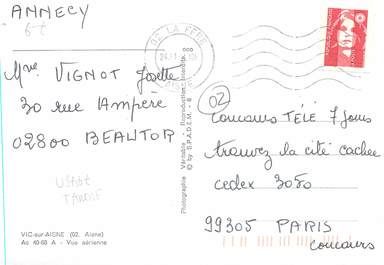 ANNECY
Mme VIGNOT Josette
30 rue Ampère
02800 BEAUTOR
VIC-sur-AISNE (02. Aisne)
Ac 40-60 A - Vue aérienne
Photographie Véritable - Reproduction Interdite
© by S.P.A.D.E.M. - 6
02 LA FERE
AISNE
02
Concours TÉLÉ 7 Jours
trouvez la cité cachée
cedex 3050
99305 PARIS
Concours